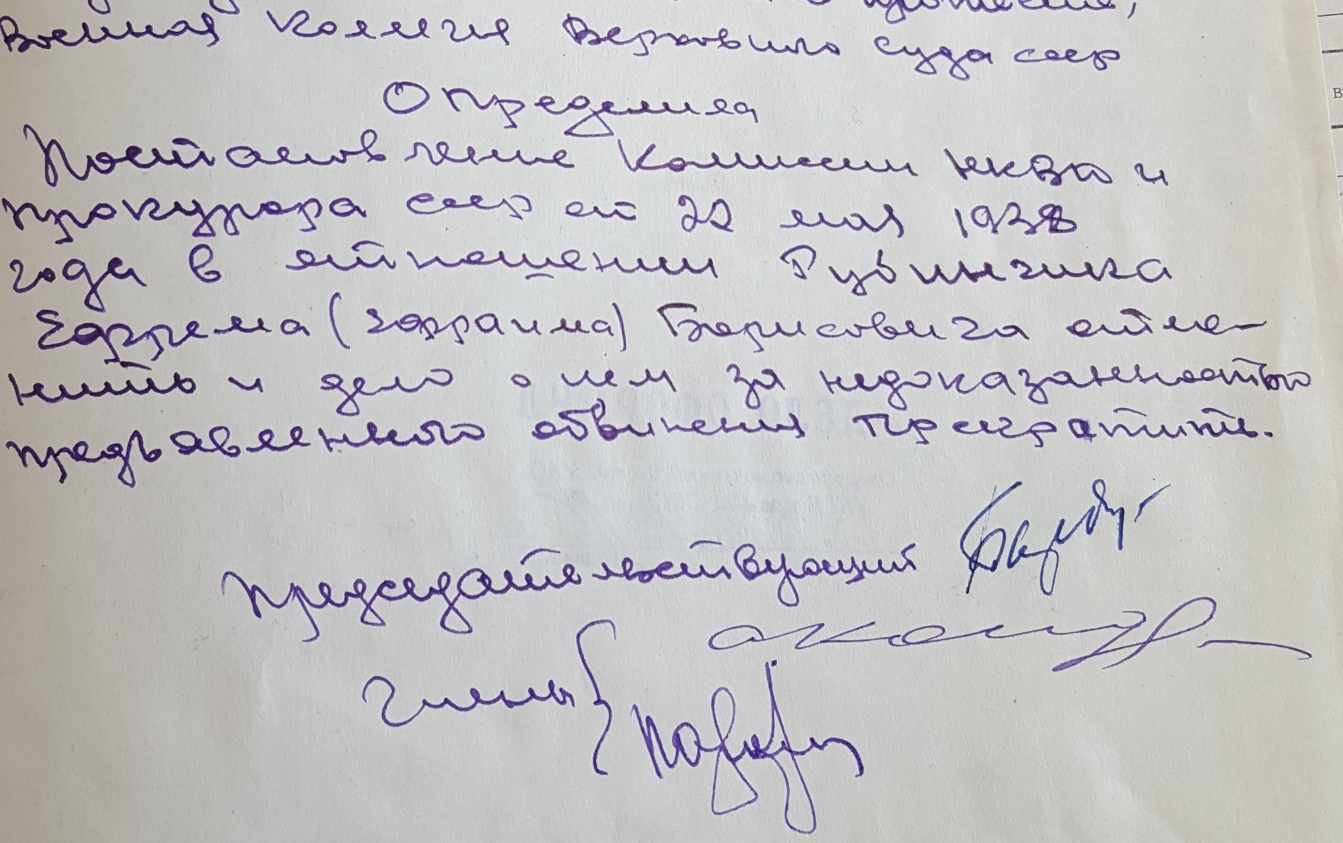 Военная Коллегия Верховного суда ссср
Определила
Постановление Комиссии НКВД и
прокурора ссср от 22 мая 1938
года в отношении Рубинчика
Ефрема (Эфраима) Борисовича отме-
нить и дело о нем за недоказанностью
предъявленного обвинения прекратить.
Председательствующий
Члены